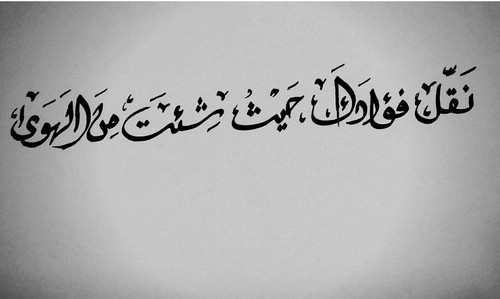 نَقِّل فؤادَكَ حَيثُ شِئتَ مِنَ الهَوَى